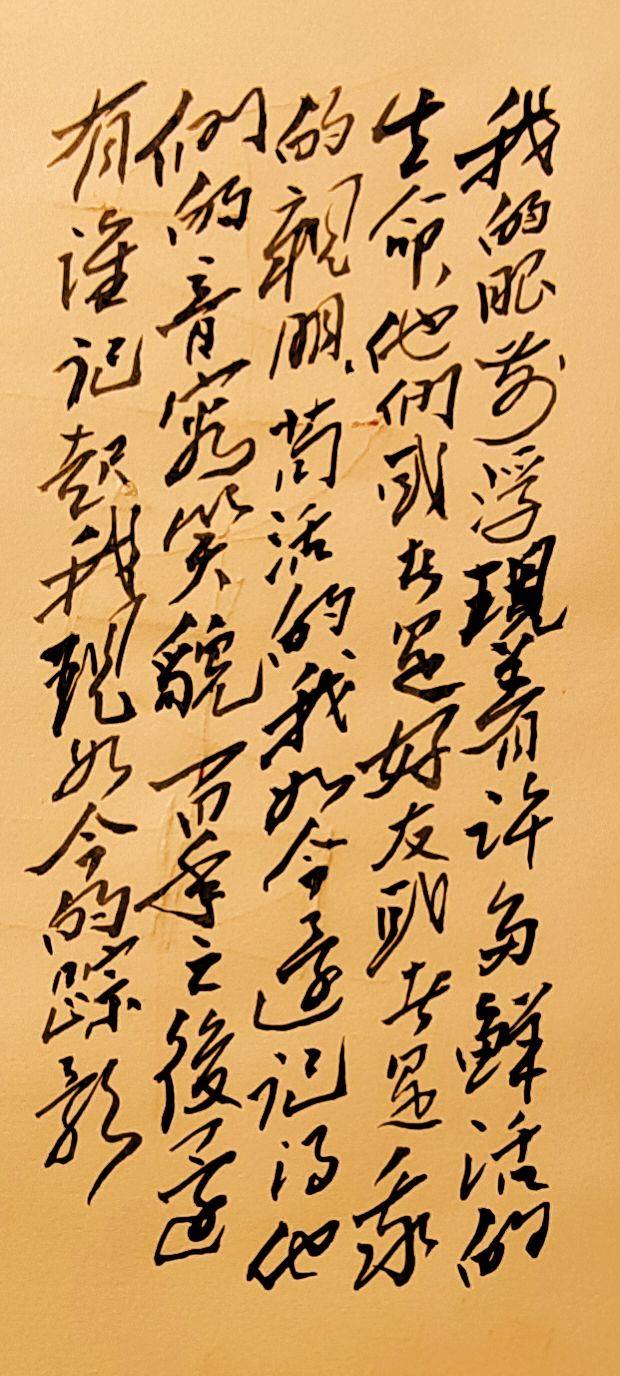 我的眼前浮現着許多鮮活的
生命,他們或者是好友或者是
的親朋、苟活的我如今還記得他
們的音容笑貌 百年之後還
有誰記起我現如今的踪影